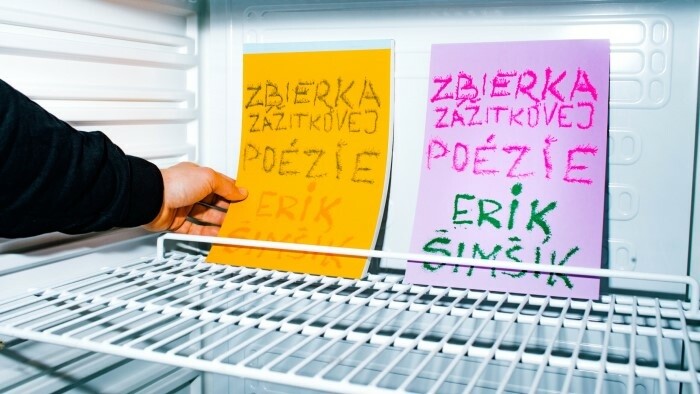 ZBIERKA
ZÁŽITKOVEJ
POÉZIE
ERIK
ŠIMŠÍK
ZBIERKA
ZÁŽITKOVEJ
POÉZIE
ERIK
ŠIMŠÍK